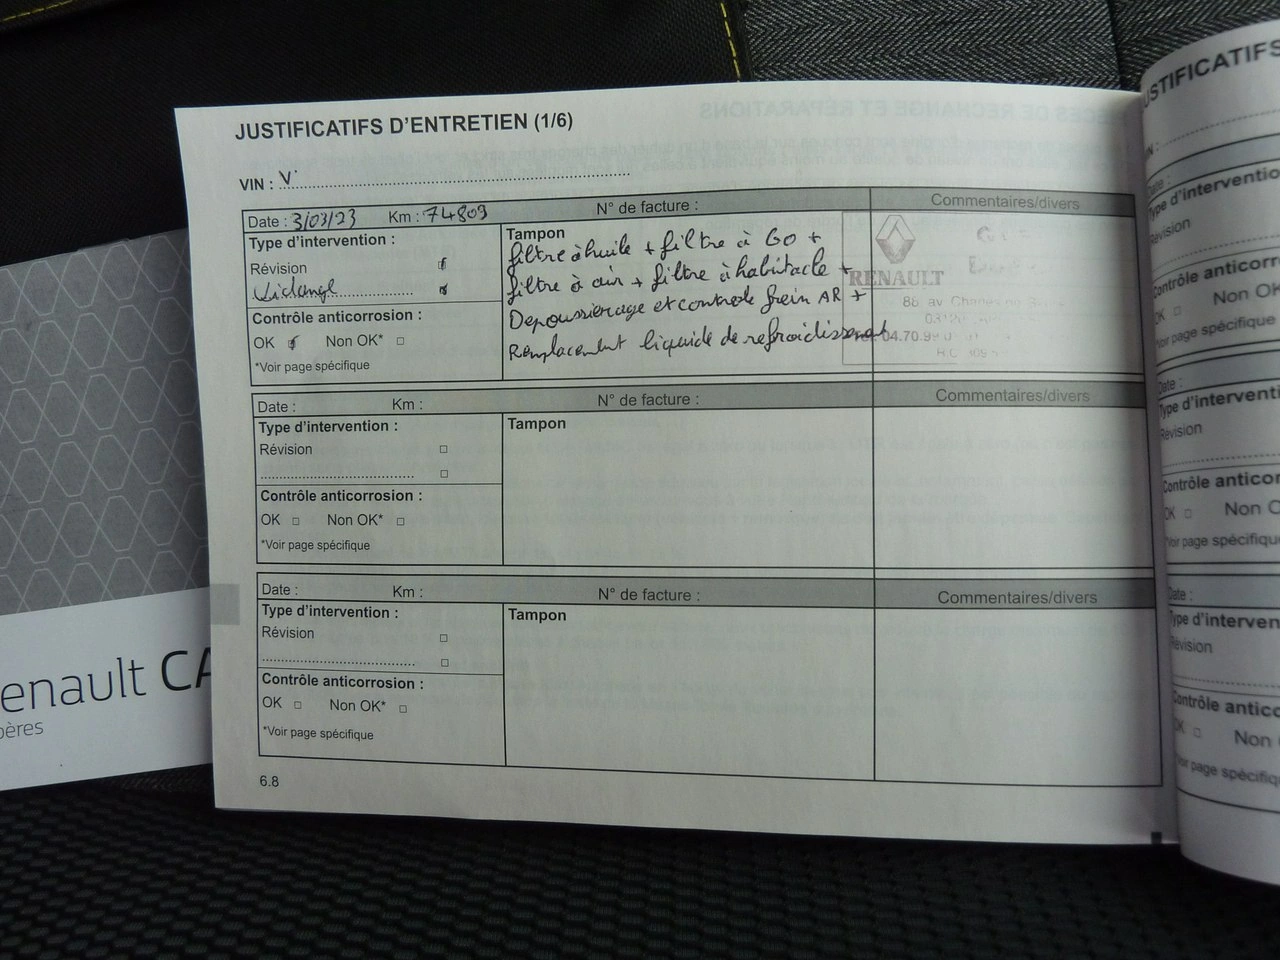 JUSTIFICATIFS D'ENTRETIEN (1/6)
VIN : V
Date : 3/03/23 Km : 74809 N° de facture : Commentaires/divers
Type d'intervention :
Révision
Vidange
Contrôle anticorrosion :
OK Non OK*
*Voir page spécifique
Tampon
filtre à huile + filtre à GO +
filtre à air + filtre à habitacle +
Depoussierage et controle frein AR +
Remplacement liquide de refroidissement
RENAULT
88 av
04.70.9
Date : Km : N° de facture : Commentaires/divers
Type d'intervention :
Révision
Contrôle anticorrosion :
OK Non OK*
*Voir page spécifique
Tampon
Date : Km : N° de facture : Commentaires/divers
Type d'intervention :
Révision
Contrôle anticorrosion :
OK Non OK*
*Voir page spécifique
Tampon
6.8
enault CA
pères
USTIFICATIFS
Date :
Type d'interventio
Révision
Contrôle anticorr
OK Non OK
*Voir page spécifique
Date :
Type d'interventi
Révision
Contrôle anticor
OK Non O
*Voir page spécifiqu
Date :
Type d'interven
Révision
Contrôle antico
OK Non
Voir page spécifiq